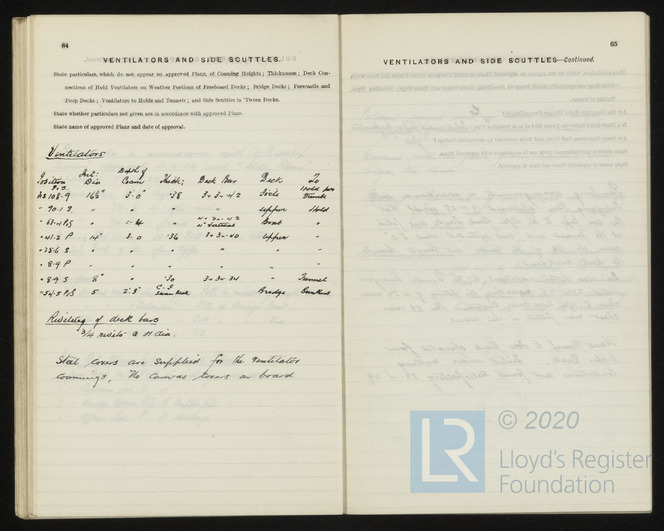 64
VENTILATORS AND SIDE SCUTTLES.
State particulars, which do not appear on approved Plans, of Coaming Heights; Thicknesses; Deck Con-
nections of Hold Ventilators on Weather Portions of Freeboard Decks; Bridge Decks; Forecastle and
Poop Decks; Ventilators to Holds and Tunnels; and Side Scuttles in 'Tween Decks.
State whether particulars not given are in accordance with approved Plans.
State name of approved Plans and date of approval.
Ventilators
Position Int: Dia Depth of Coam Thick: Deck Bar Deck To
108.9 16½" 3.0" .38 3 × 3 × .42 Focle Hold
" 90.1 " " " " Upper Hold
" 63.4 P,S " 1.4 " Boat "
" 41.2 P 14" 3.0 .36 3 × 3 × .40 Upper "
" 25.6 S " " " " " "
" 8.9 P " " " " " "
" 8.9 S 8" " .30 3 × 3 × .34 " Tunnel
" 54.5 P,S 5 2'.3" C.I. Bridge Bunkers
Rivetting of deck bars
3/4 rivets @ dia.
Steel covers are supplied for the ventilator
coamings, No canvas covers on board
65
VENTILATORS AND SIDE SCUTTLES—Continued.
LR
© 2020
Lloyd's Register
Foundation